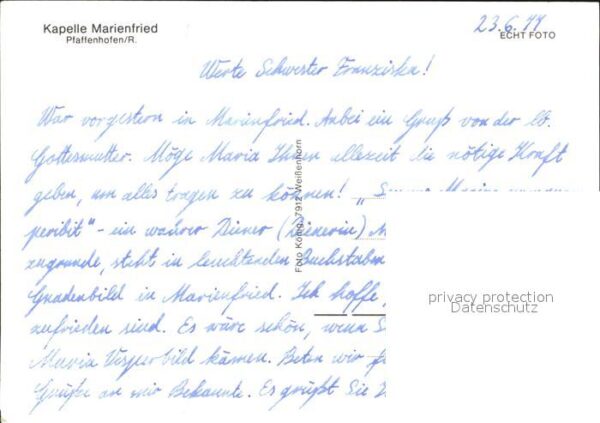 Kapelle Marienfried
Pfaffenhofen/R.
23.6.77
ECHT FOTO
Werte Schwester Franziska!
War vorgestern in Marienfried. Anbei ein Gruß von der lb.
Gottesmutter. Möge Maria Ihnen allezeit die nötige Kraft
geben, um alles tragen zu können!
peribit" - ein wahrer Diener (Dienerin)
zugrunde, steht in leuchtenden Buchstaben
Gnadenbild in Marienfried. Ich hoffe,
zufrieden sind. Es wäre schön, wenn
Maria Vesperbild kämen. Beten wir
Grüße an mir Bekannte. Es grüßt Sie
Foto König, 7912 Weißenhorn
privacy protection
Datenschutz